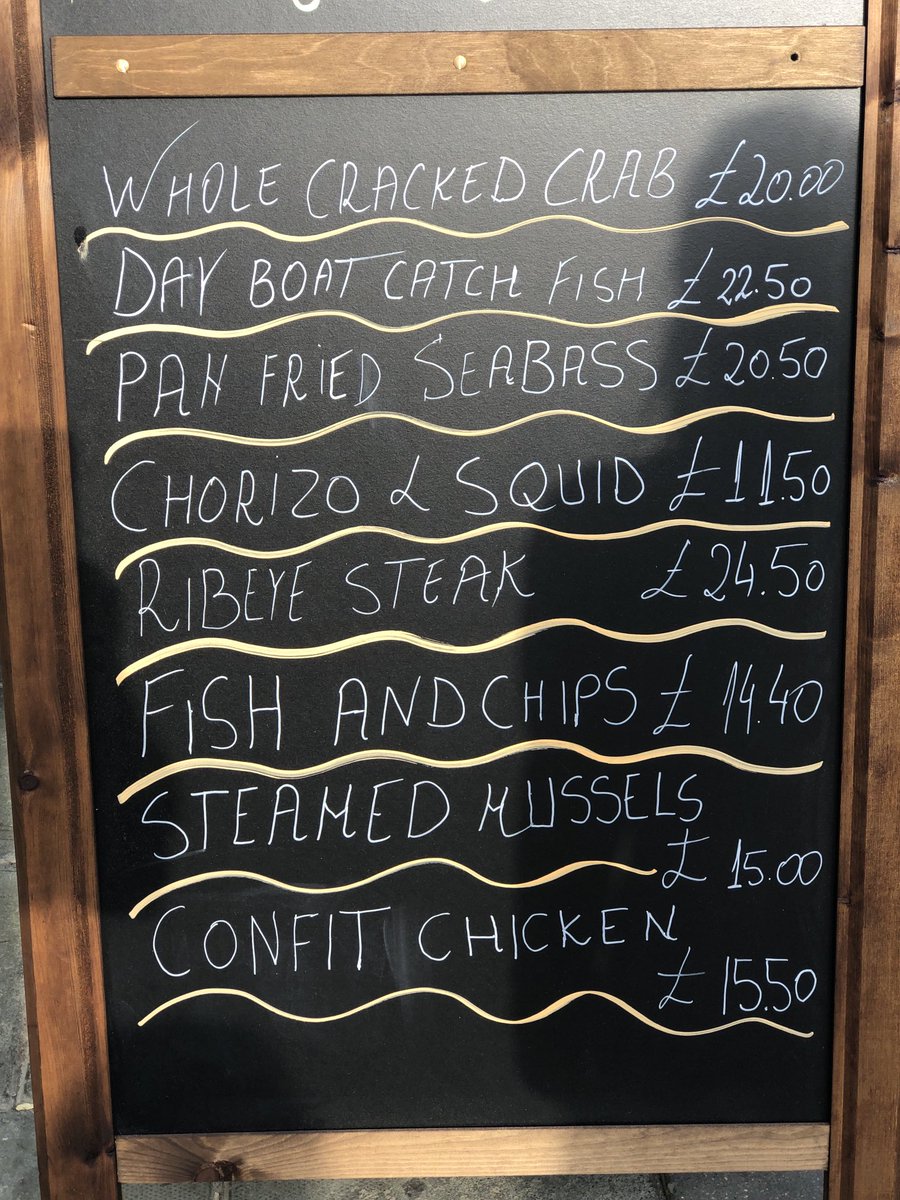 WHOLE CRACKED CRAB £20.00
DAY BOAT CATCH FISH £22.50
PAN FRIED SEABASS £20.50
CHORIZO & SQUID £11.50
RIBEYE STEAK £24.50
FISH AND CHIPS £14.40
STEAMED MUSSELS
£15.00
CONFIT CHICKEN
£15.50